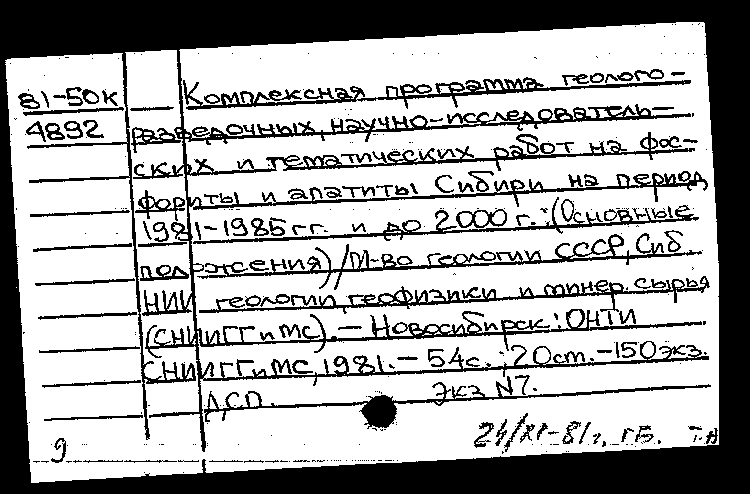 81-50к Комплексная программа геолого-
4892 разведочных, научно-исследователь-
ских и тематических работ на фос-
фориты и апатиты Сибири на период
1981-1985 гг. и до 2000 г.: (Основные
положения) / М-во геологии СССР, Сиб.
НИИ геологии, геофизики и минер. сырья
(СНИИГГиМС). – Новосибирск: ОНТИ
СНИИГГиМС, 1981. – 54с.; 20см. – 150 экз.
ДСП. Экз N7.
9 24/XI-81г. гБ. Т.Н